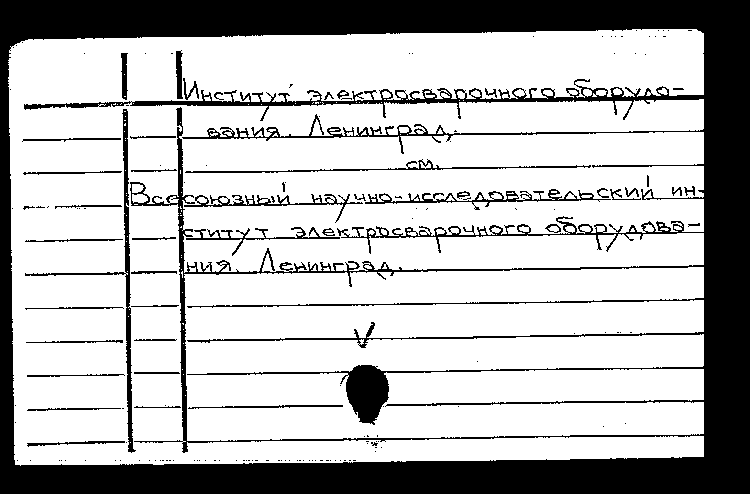 Институт электросварочного оборудо-
вания. Ленинград,
см.
Всесоюзный научно-исследовательский ин-
ститут электросварочного оборудова-
ния. Ленинград.